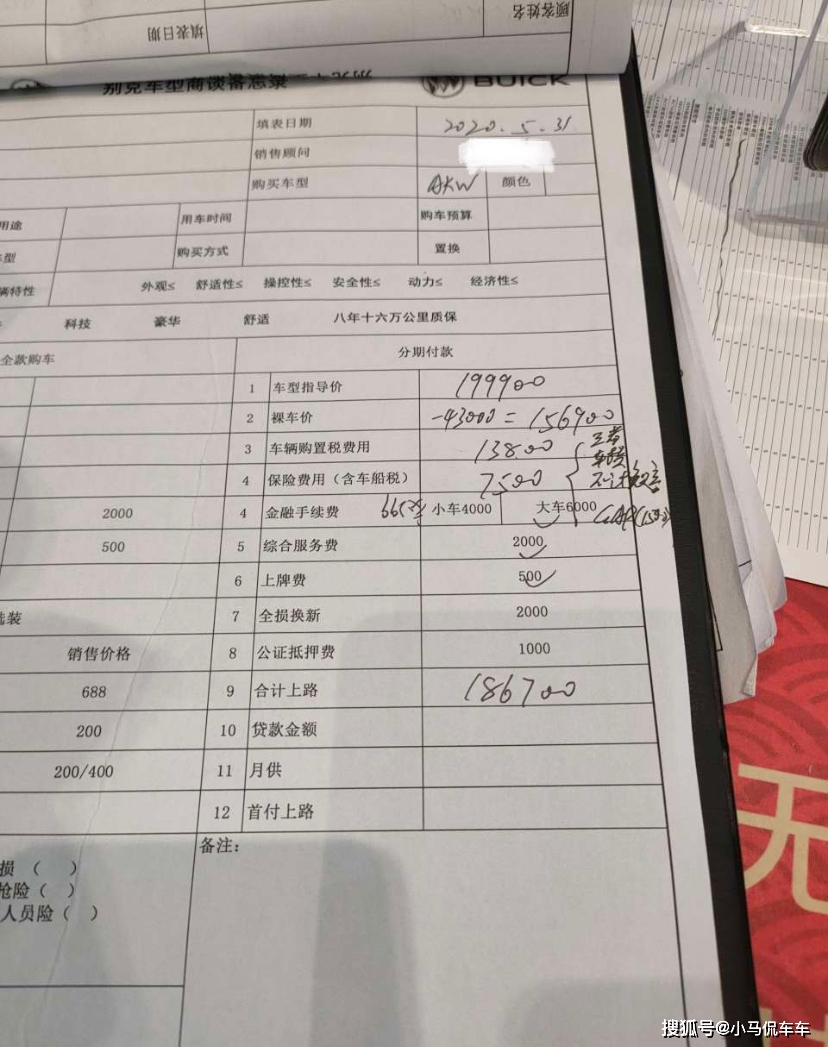 顾客姓名
填表日期
别克车型商谈备忘录
BUICK
填表日期 2020.5.31
销售顾问
购买车型 AKW 颜色
用途 用车时间 购车预算
车型 购买方式 置换
辆特性 外观≤ 舒适性≤ 操控性≤ 安全性≤ 动力≤ 经济性≤
科技 豪华 舒适 八年十六万公里质保
全款购车 分期付款
1 车型指导价 199900
2 裸车价 -43000 = 156900
3 车辆购置税费用 13800
4 保险费用（含车船税） 7500
三者
不计
2000 4 金融手续费 小车4000 大车6000
500 5 综合服务费 2000
6 上牌费 500
选装 7 全损换新 2000
销售价格 8 公证抵押费 1000
688 9 合计上路 186700
200 10 贷款金额
200/400 11 月供
12 首付上路
备注：
损（ ）
抢险（ ）
人员险（ ）
无
搜狐号@小马侃车车